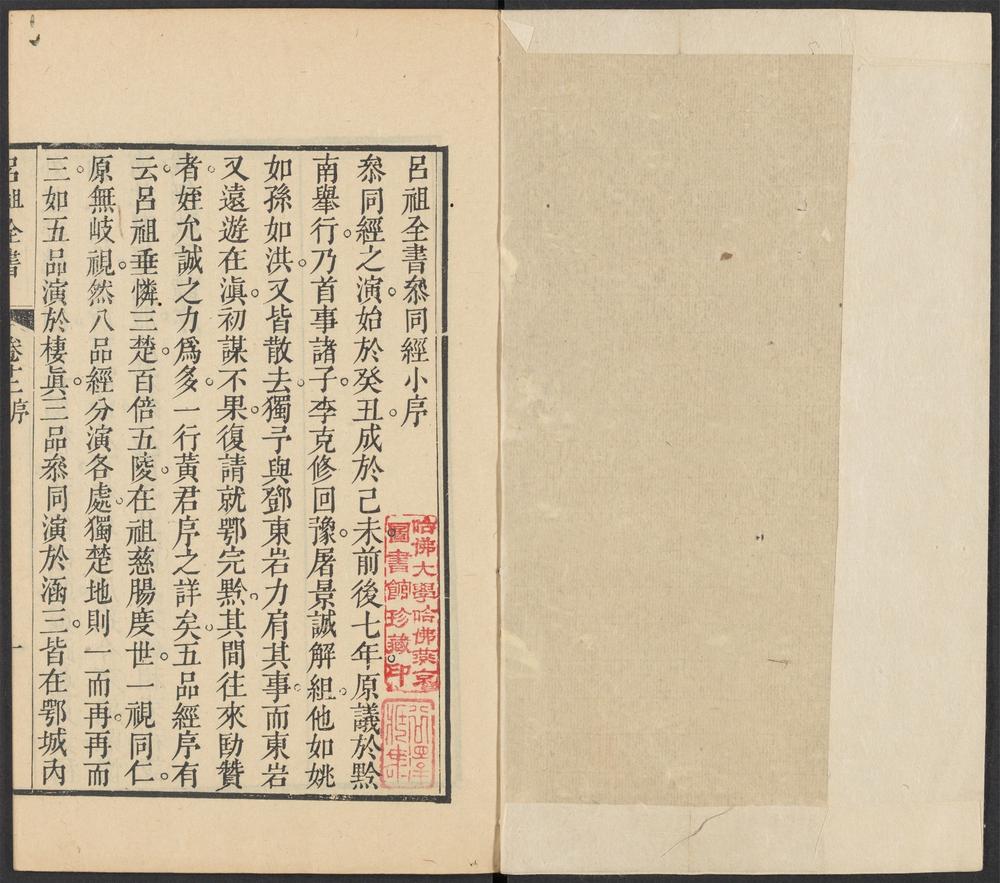 呂祖全書叅同經小序
叅同經之演始於癸丑成於己未前後七年原議於黔
南舉行乃首事諸子李克修回豫屠景誠解組他如姚
如孫如洪又皆散去獨予與鄧東岩力肩其事而東岩
又遠遊在滇初謀不果復請就鄂完黔其間往來勷贊
者姪允誠之力爲多一行黃君序之詳矣五品經序有
云呂祖垂憐三楚百倍五陵在祖慈腸度世一視同仁
原無岐視然八品經分演各處獨楚地則一而再再而
三如五品演於棲眞三品叅同演於涵三皆在鄂城內
呂祖全書 卷十二 序 一
哈佛大學哈佛燕京
圖書館珍藏印